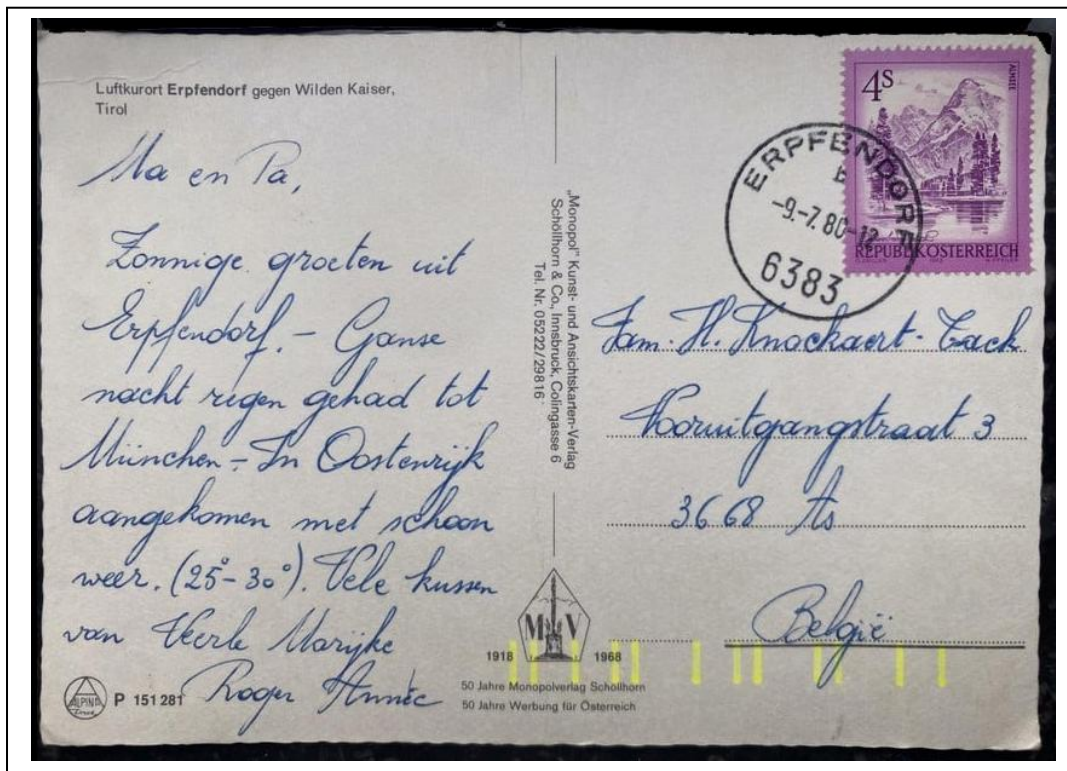 Luftkurort Erpfendorf gegen Wilden Kaiser,
Tirol
Ma en Pa,
Zonnige groeten uit
Erpfendorf. - Ganse
nacht regen gehad tot
München - In Oostenrijk
aangekomen met schoon
weer. (25° - 30°). Vele kussen
van Veerle Marijke
Roger Annie
ALPINA
P 151 281
„Monopol" Kunst- und Ansichtskarten-Verlag
Schöllhorn & Co., Innsbruck, Colingasse 6
Tel. Nr. 05222/29816
M V
1918 1968
50 Jahre Monopolverlag Schöllhorn
50 Jahre Werbung für Österreich
4S
ALMSEE
REPUBLIK ÖSTERREICH
ERPFENDORF
-9.-7.80-12
6383
Fam. H. Knockaert - Tack
Vooruitgangstraat 3
3668 As
België